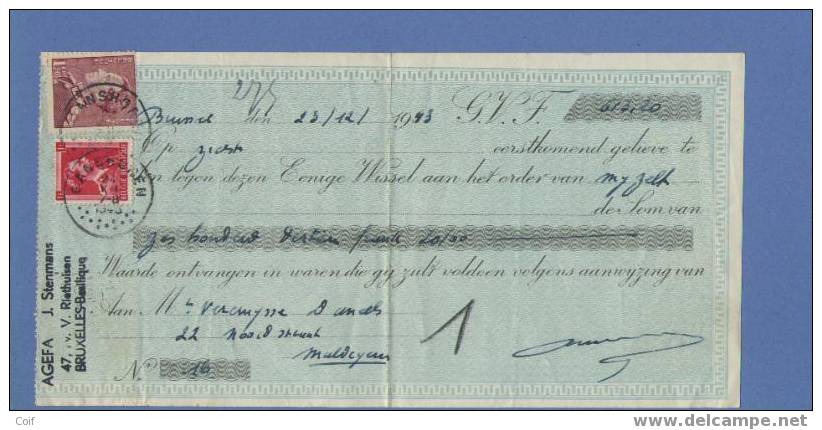 275
Brussel den 23/12/1943 G.V.F. 613,20
Op zicht eerstkomend gelieve te
tegen dezen Eenige Wissel aan het order van my zelf
de Som van
Zes honderd dertien frank 20/00
Waarde ontvangen in waren die gij zult voldoen volgens aanwyzing van
Aan Mr Vercruysse Daniel
22 Noordstraat
Maldegem
No 16
1
AGEFA J. Stenmans
47, Av. V. Riethuisen
BRUXELLES-Basilique
GANSHOREN
GANSHOREN
7-8
1943
Coif
www.delcampe.net